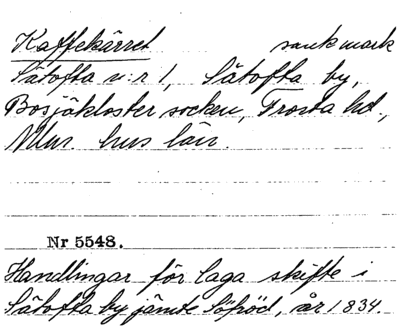 Kaffekärret sank mark
Sätofta n:r 1, Sätofta by,
Bosjökloster socken, Frosta hd.,
Mlm. hus län.
Nr 5548.
Handlingar för laga skifte i
Sätofta by jämte Sjöröd, år 1834.